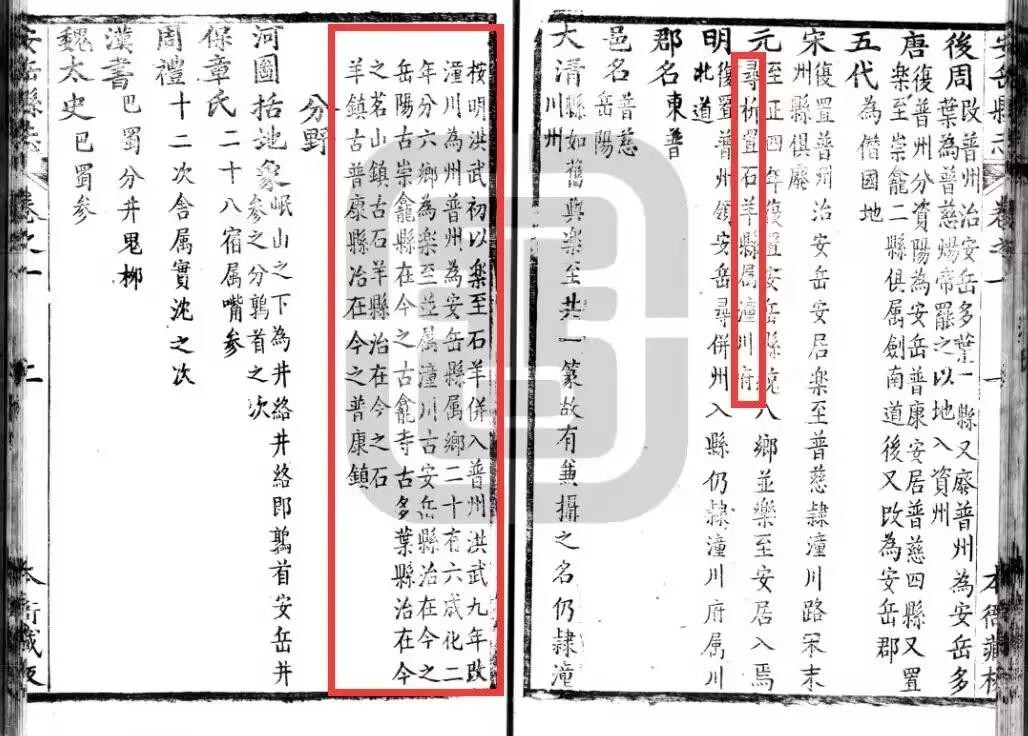 安岳縣志 卷之一 一 本衙藏板
後周 改普州治安岳多葉一縣又廢普州為安岳多
葉為普慈煬帝罷之以地入資州
唐 復普州分資陽為安岳普康安居普慈四縣又置
樂至崇龕二縣俱属劍南道後又改為安岳郡
五代 為僭國地
宋 復置普州治安岳安居樂至普慈隸潼川路宋末
州縣俱廢
元 至正四年復置安岳縣統八鄉並樂至安居入焉
尋析置石羊縣属潼川府
明 復置普州領安岳尋併州入縣仍隸潼川府属川
北道
郡名 東普
邑名 普慈
岳陽
大清 縣如舊與樂至共一篆故有兼攝之名仍隸潼
川州
按明洪武初以樂至石羊併入普州洪武九年改
潼川為州普州為安岳縣属鄉二十有六成化二
年分六鄉為樂至並属潼川古安岳縣治在今之
岳陽古崇龕縣在今之古龕寺古多葉縣治在今
之茗山鎮古石羊縣治在今之石
羊鎮古普康縣治在今之普康鎮
分野
河圖括地象 岷山之下為井絡井絡即鶉首安岳井
參之分鶉首之次
保章氏二十八宿属嘴參
周禮十二次舍属實沈之次
漢書 巴蜀分井鬼柳
魏太史 巴蜀參
安岳縣志 卷之一 二 本衙藏板